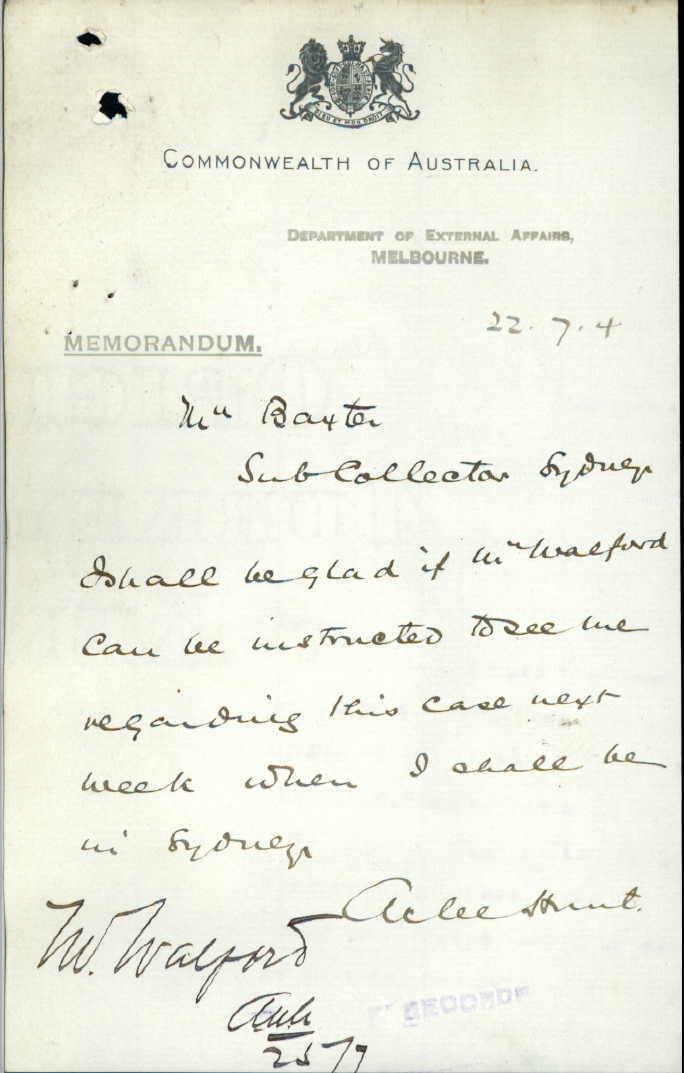 DIEU ET MON DROIT
COMMONWEALTH OF AUSTRALIA.
DEPARTMENT OF EXTERNAL AFFAIRS,
MELBOURNE.
22.7.4
MEMORANDUM.
Mr Baxter
Sub Collector Sydney
I shall be glad if Mr Walford
can be instructed to see me
regarding this case next
week when I shall be
in Sydney
Atlee Hunt.
Mr. Walford
25/7
RECORDS